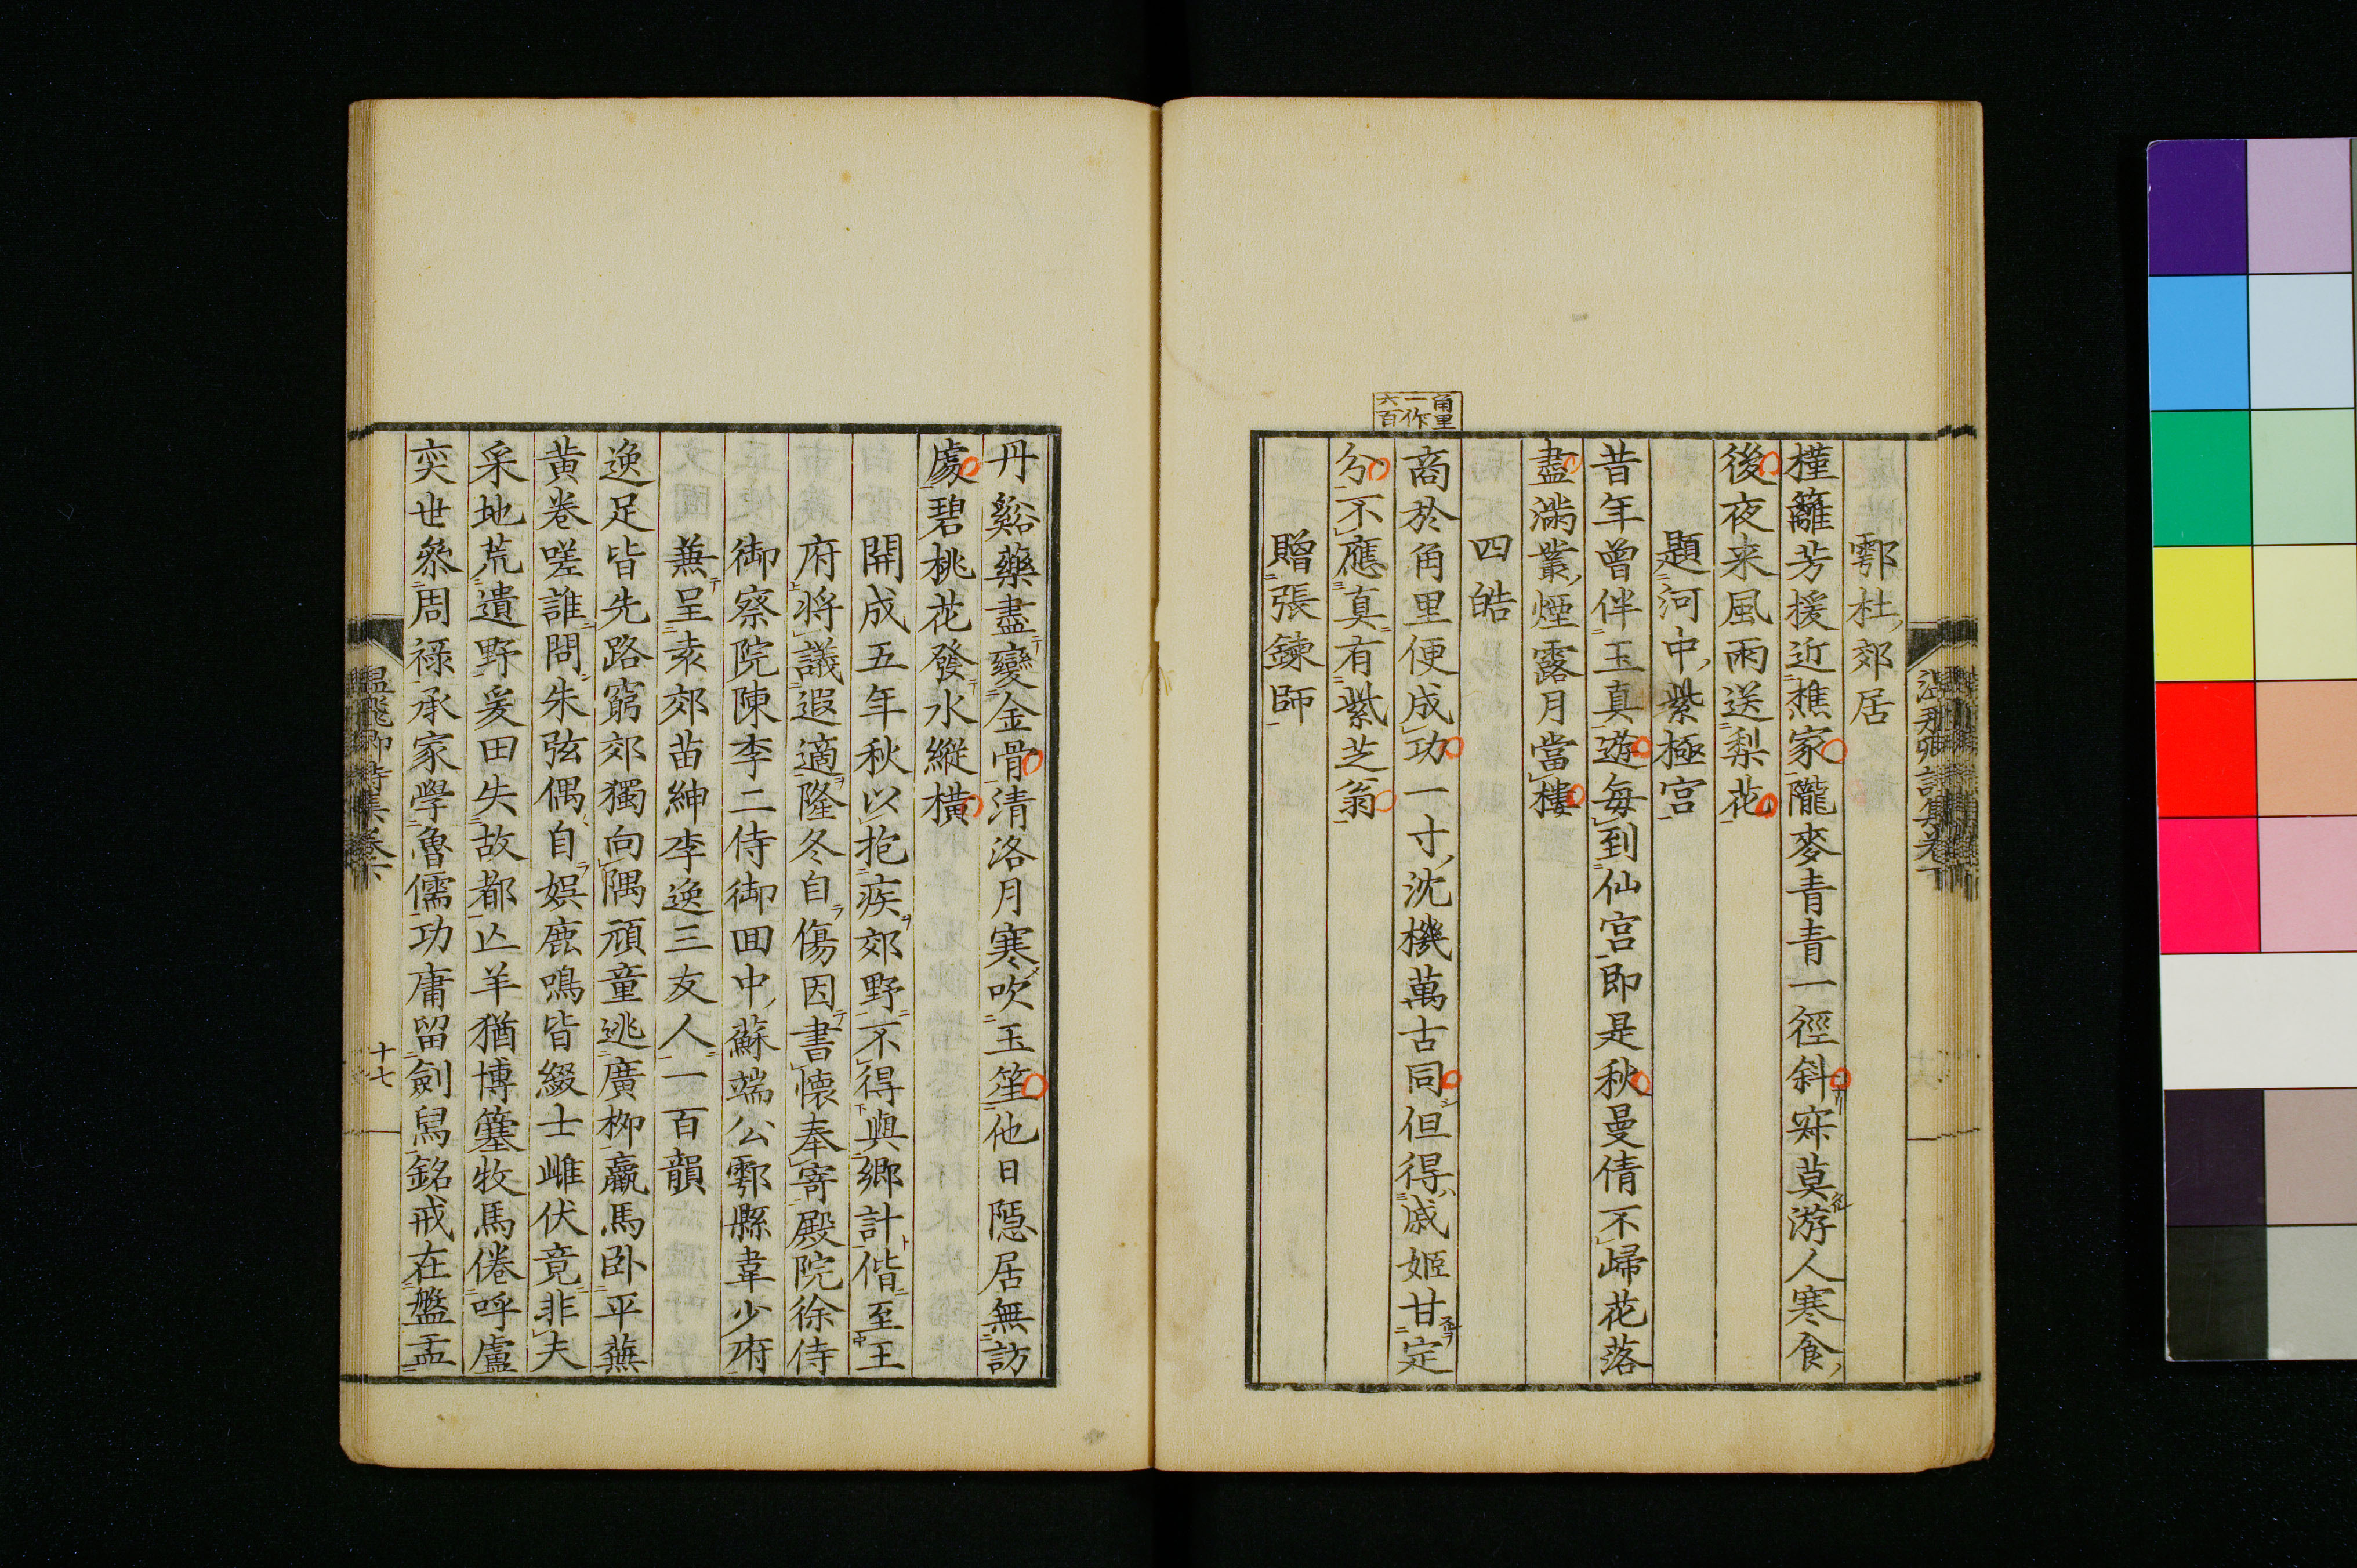 鄠杜郊居
槿籬芳援近樵家隴麥青青一徑斜寂莫游人寒食
後夜来風雨送梨花
題河中紫極宮
昔年曾伴玉真遊每到仙宮即是秋曼倩不歸花落
盡滿叢煙露月當樓
四皓
角里
一作
六百
商於角里便成功一寸沈機萬古同但得戚姬甘定
分不應真有紫芝翁
贈張鍊師
丹谿藥盡變金骨清洛月寒吹玉笙他日隱居無訪
處碧桃花發水縱橫
開成五年秋以抱疾郊野不得與鄉計偕至王
府将議遐適隆冬自傷因書懷奉寄殿院徐侍
御察院陳李二侍御囬中蘇端公鄠縣韋少府
兼呈袁郊苗紳李逸三友人一百韻
逸足皆先路窮郊獨向隅頑童逃廣柳羸馬卧平蕪
黃卷嗟誰問朱弦偶自娯鹿鳴皆綴士雌伏竟非夫
采地荒遺野爰田失故都亾羊猶博簺牧馬倦呼盧
奕世叅周禄承家學魯儒功庸留劍舄銘戒在盤盂
溫飛卿詩集卷六
十七